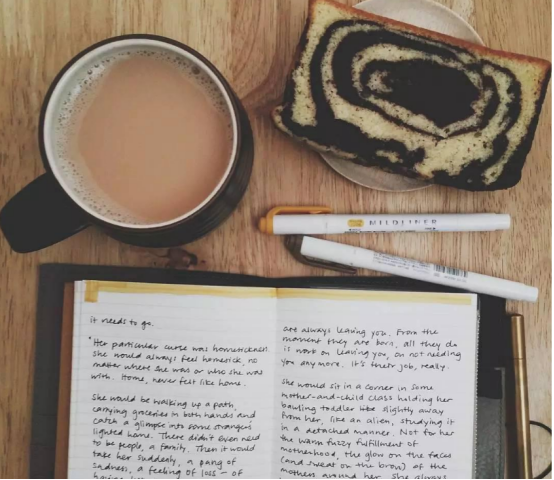 MILDLINER
it needs to go.
"Her particular curse was homesickness.
She would always feel homesick, no
matter where she was or who she was
with. Home, never felt like home.
She would be walking up a path,
carrying groceries in both hands and
catch a glimpse into some strangers
lighted home. There didn't even need
to be people, a family. Then it would
take her suddenly, a pang of
sadness, a feeling of loss — of
having
are always leaving you. From the
moment they are born, all they do
is work on leaving you, on not needing
you anymore. It's their job, really.
She would sit in a corner in some
mother-and-child class holding her
bawling toddler like slightly away
from her, like an alien, studying it
in a detached manner. Not for her
the warm fuzzy fulfillment of
motherhood, the glow on the faces
(and sweat on the brow) of the
mothers around her. She always